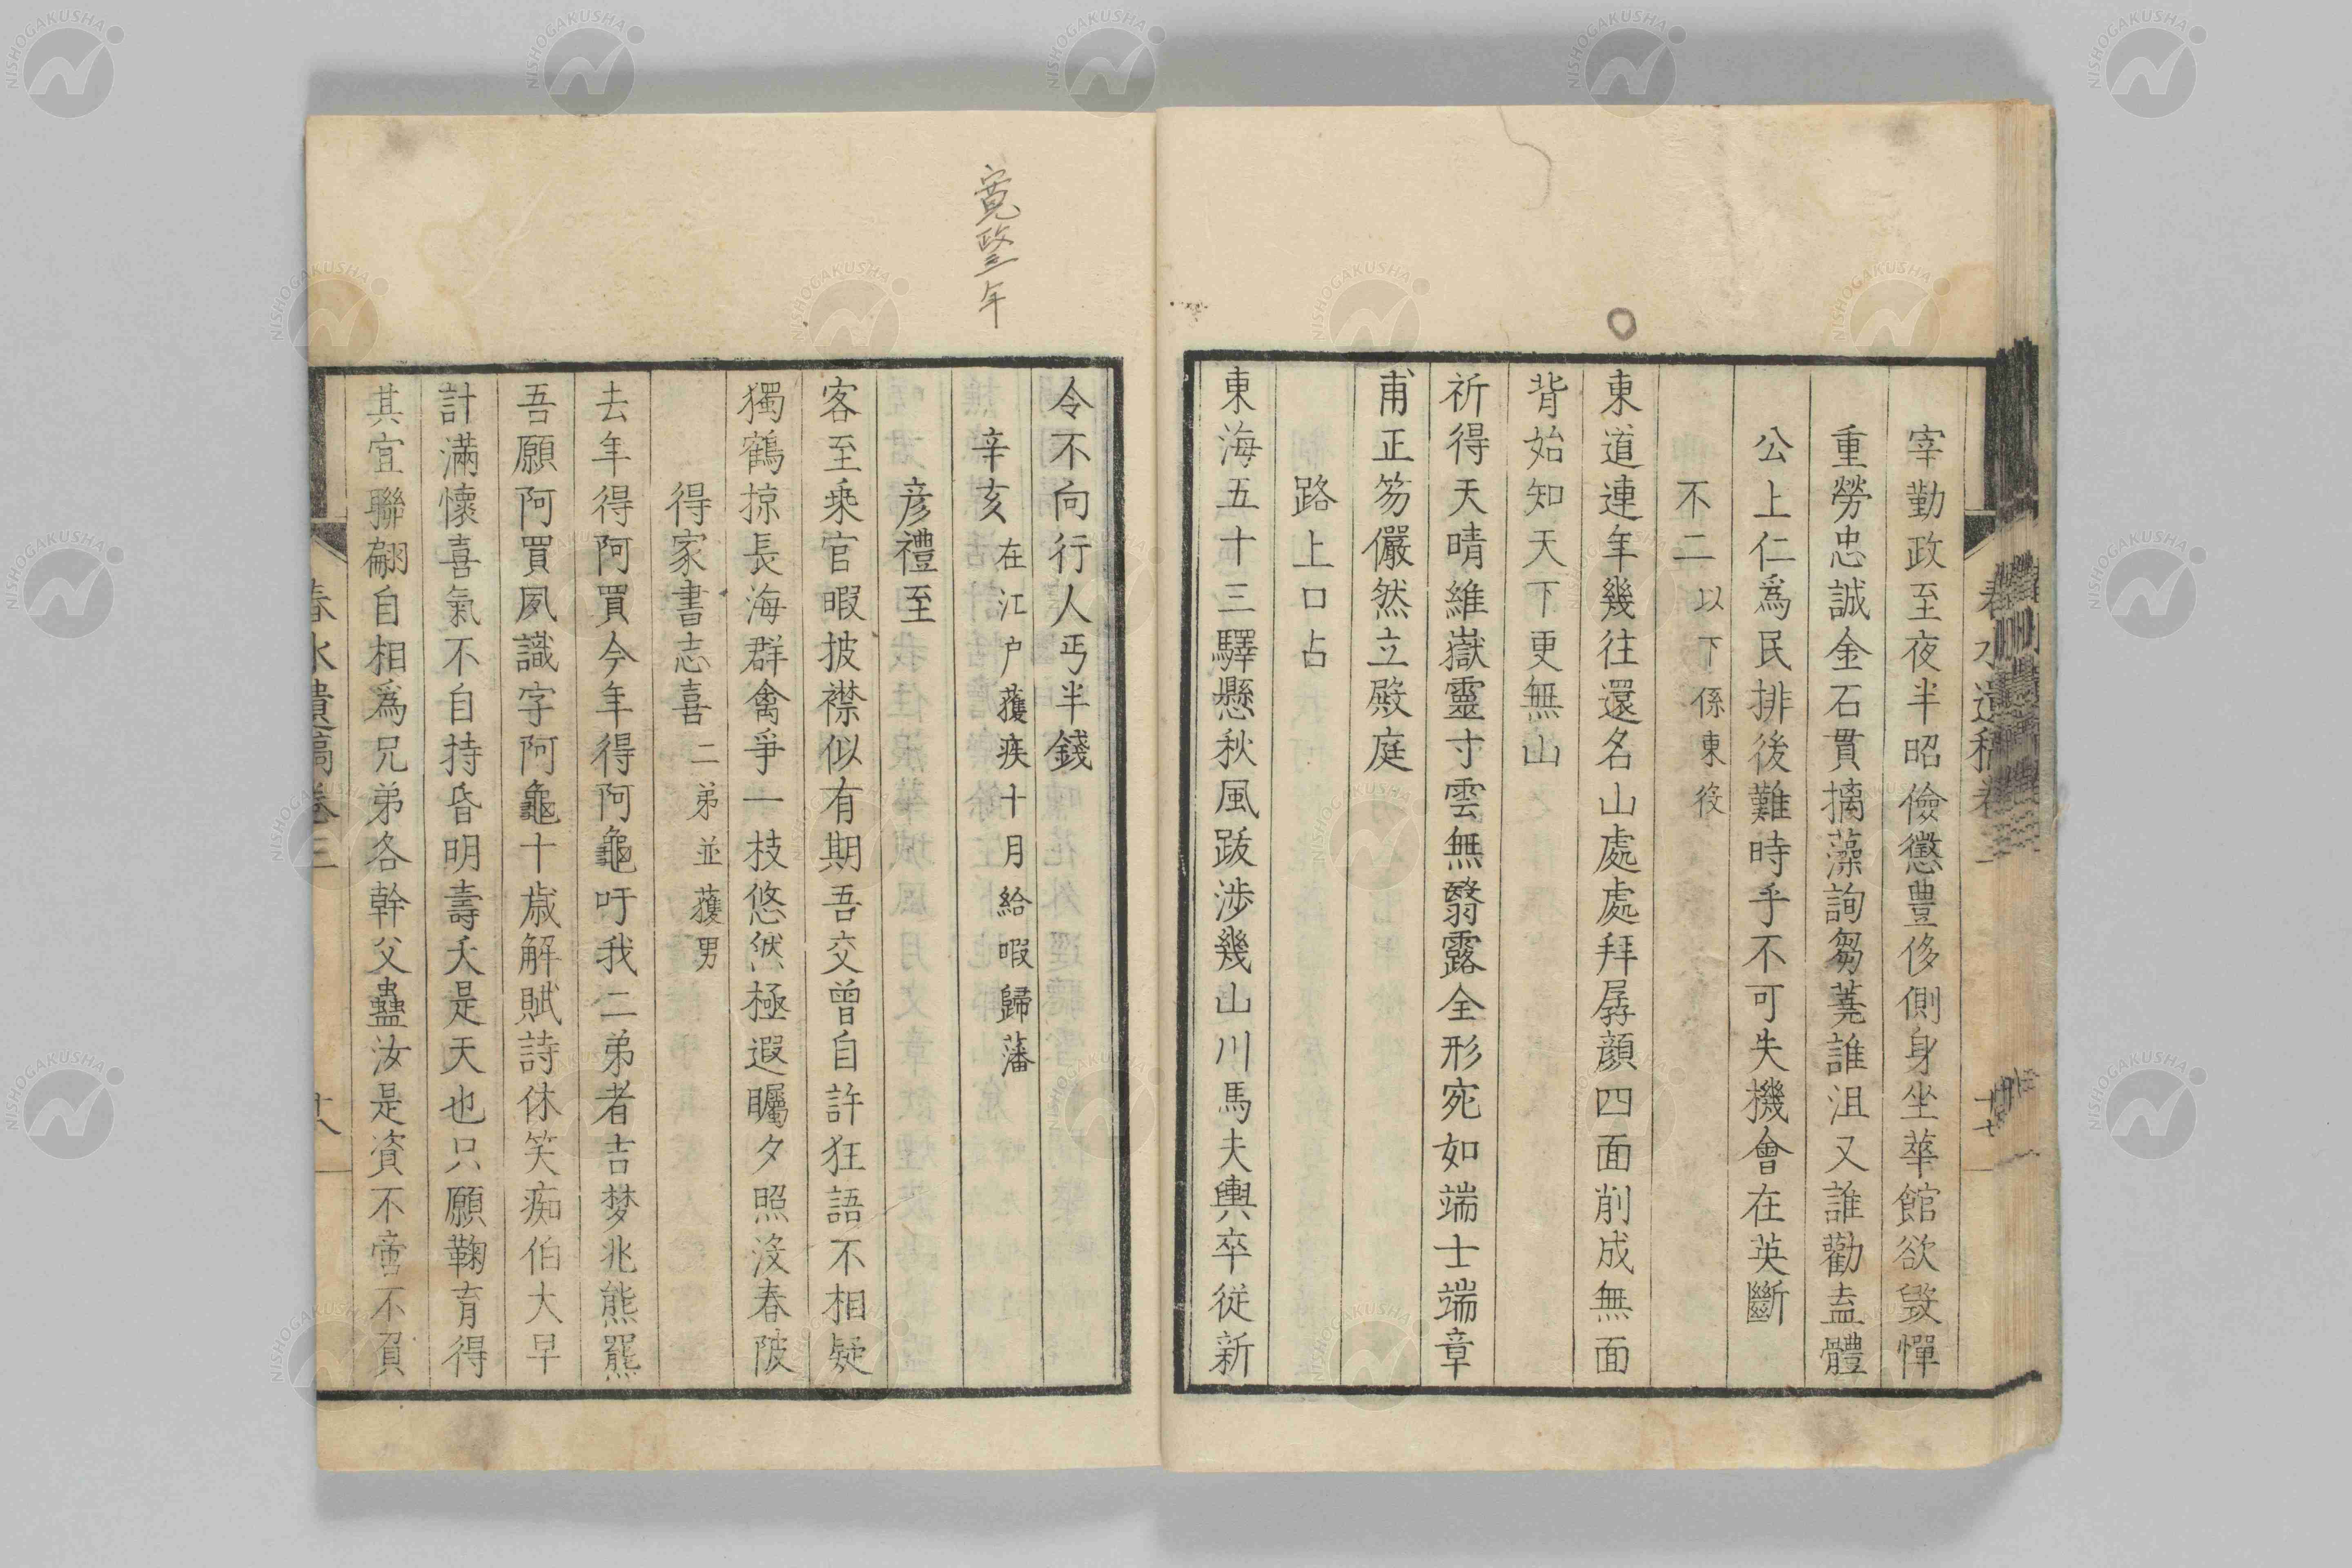 宰勤政至夜半昭儉懲豊侈側身坐華館欲毀憚
重勞忠誠金石貫摛藻詢芻蕘誰沮又誰勸盍體
公上仁爲民排後難時乎不可失機會在英斷
不二以下係東役
東道連年幾往還名山處處拜孱顔四面削成無面
背始知天下更無山
祈得天晴維嶽靈寸雲無翳露全形宛如端士端章
甫正笏儼然立殿庭
路上口占
東海五十三驛懸秋風跋涉幾山川馬夫輿卒従新
令不向行人丐半錢
寛政三年
辛亥在江户獲疾十月給暇歸藩
彦禮至
客至乗官暇披襟似有期吾交曾自許狂語不相疑
獨鶴掠長海群禽爭一枝悠然極遐矚夕照没春陂
得家書志喜二弟並獲男
去年得阿買今年得阿龜吁我二弟者吉梦兆熊羆
吾願阿買夙識字阿龜十歳解賦詩休笑痴伯大早
計滿懷喜氣不自持昏明壽夭是天也只願鞠育得
其宜聯翩自相爲兄弟各幹父蠱汝是資不啻不負
春水遺稿卷三
十八
NISHOGAKUSHA